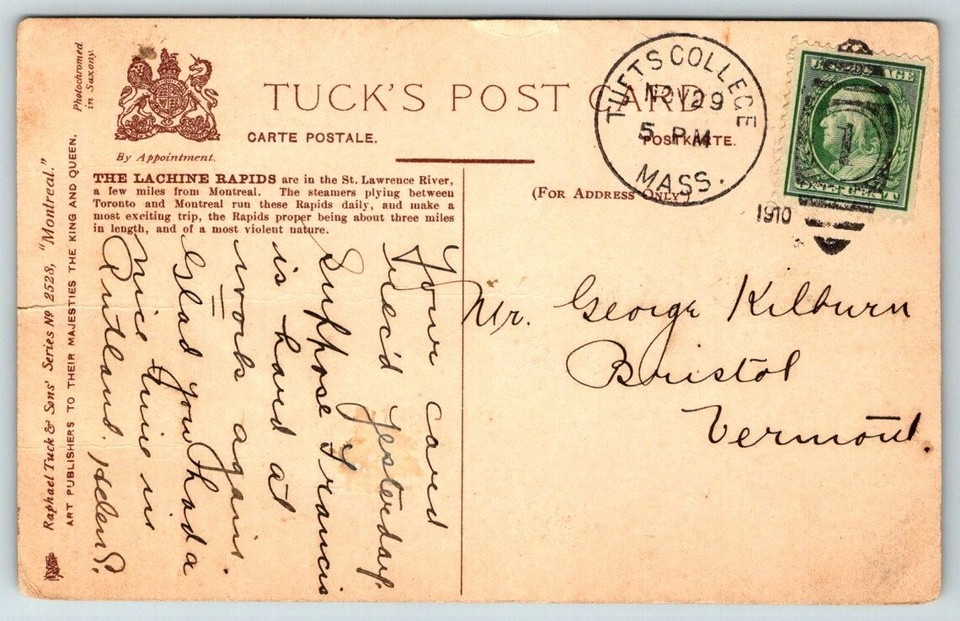 Photochromed
in Saxony.
By Appointment.
TUCK'S POST CARD
CARTE POSTALE.
POSTKARTE.
TUFTS COLLEGE
NOV 29
5 PM
MASS.
1910
U.S. POSTAGE
1
ONE CENT
THE LACHINE RAPIDS are in the St. Lawrence River,
a few miles from Montreal. The steamers plying between
Toronto and Montreal run these Rapids daily, and make a
most exciting trip, the Rapids proper being about three miles
in length, and of a most violent nature.
(FOR ADDRESS ONLY)
Raphael Tuck & Sons' Series No 2528, "Montreal."
ART PUBLISHERS TO THEIR MAJESTIES THE KING AND QUEEN.
Your card
rec'd yesterday.
Suppose Francis
is hard at
work again.
Glad you had a
nice time in
Rutland. Helen P.
Mr. George Kilburn
Bristol
Vermont.